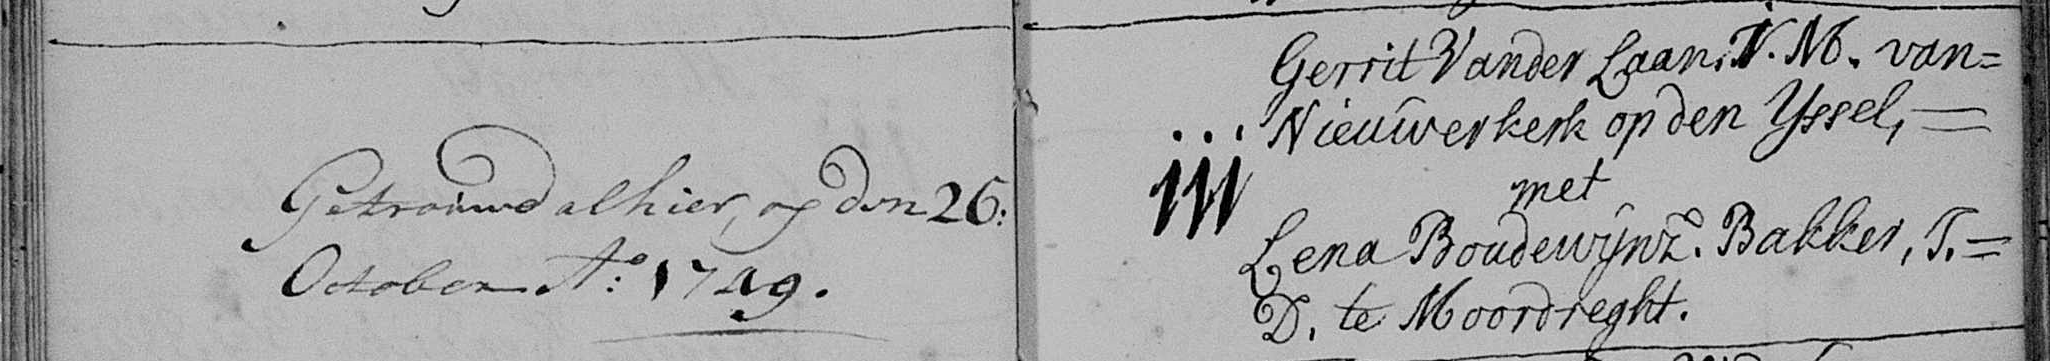 Getrouwd alhier, op den 26:
October A°: 1749.
Gerrit Vander Laan, J. M. van=
Nieuwerkerk op den Yssel, =
met
Lena Boudewÿnz.° Bakker, J.=
D. te Moordreght.